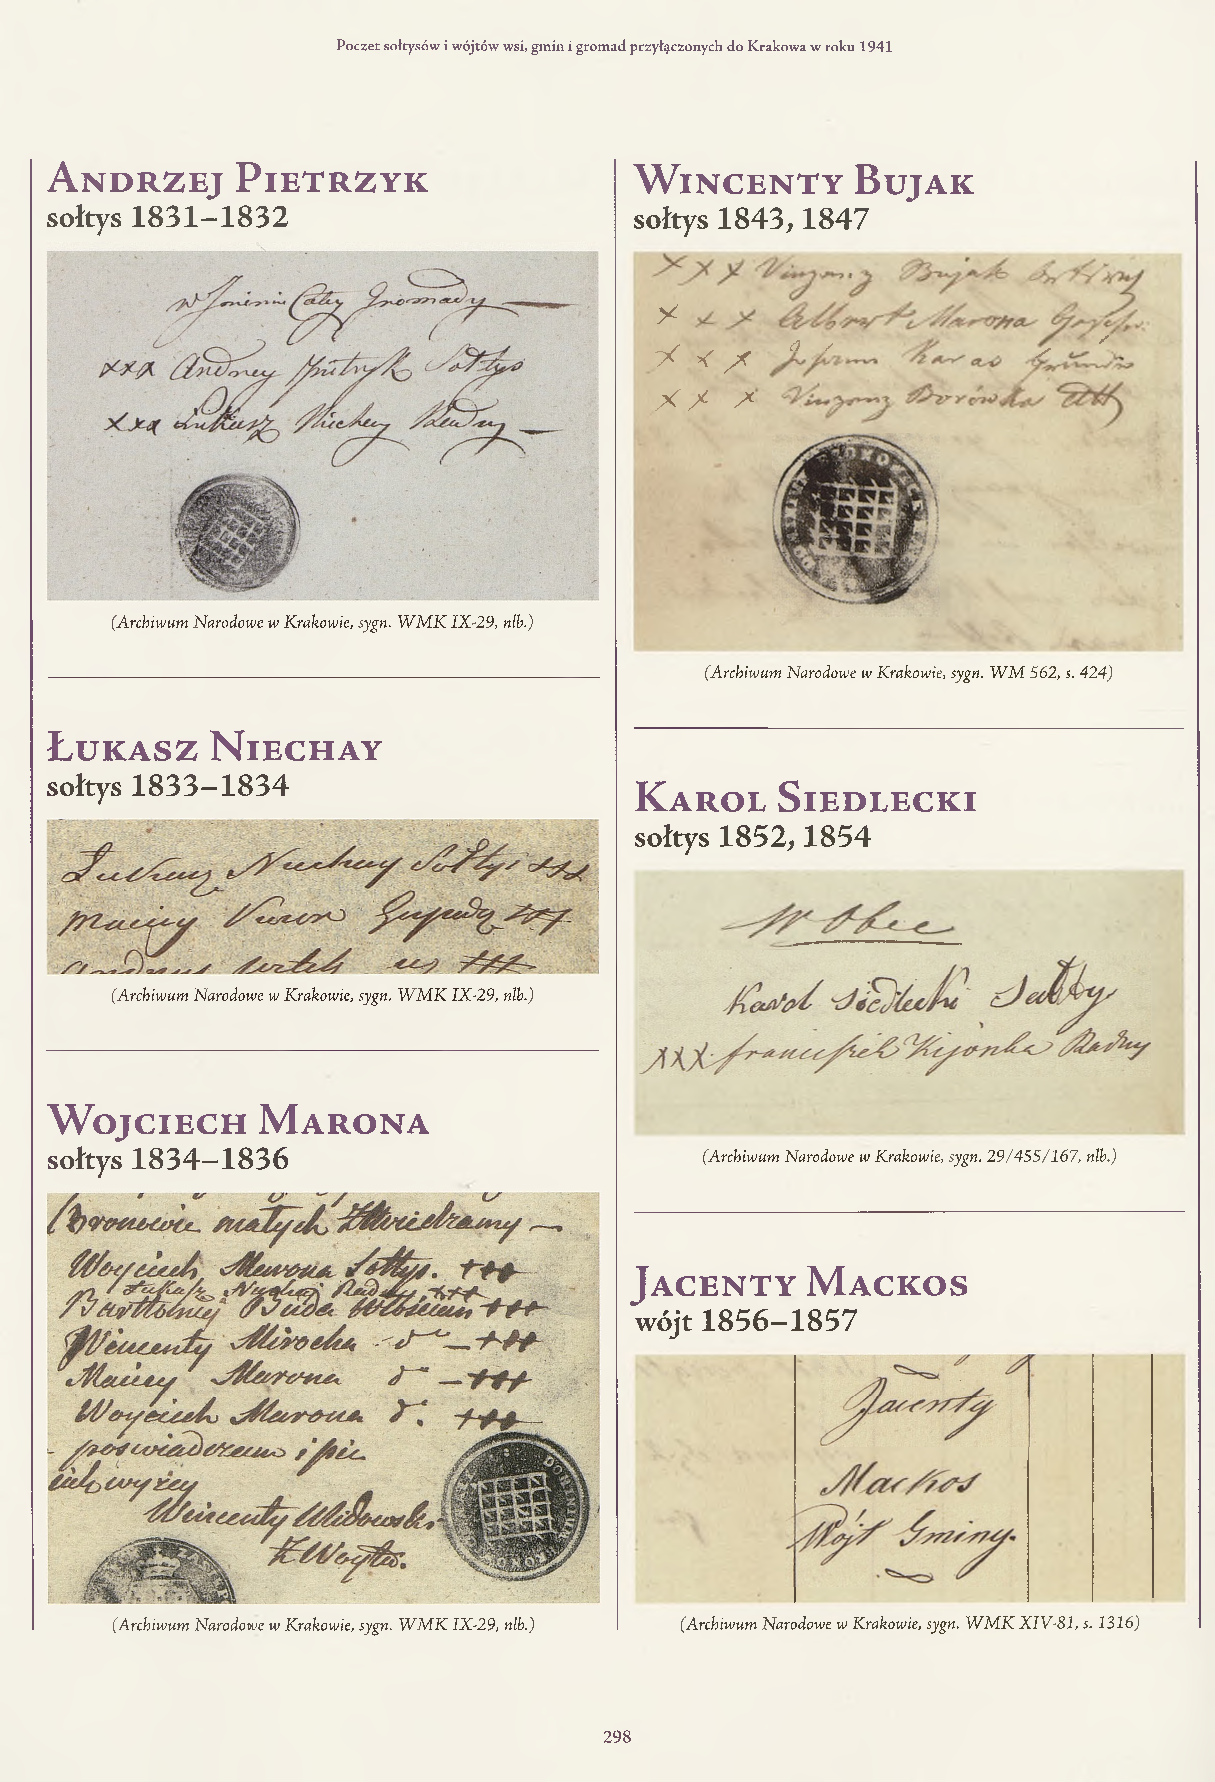 Poczet sołtysów i wójtów wsi, gmin i gromad przyłączonych do Krakowa w roku 1941
Andrzej Pietrzyk
sołtys 1831–1832
w Imieniu Całey Gromady
xxx Andrzey Pietrzyk Sołtys
xxx Łukasz Niechey Radny
(Archiwum Narodowe w Krakowie, sygn. WMK IX-29, nlb.)
Łukasz Niechay
sołtys 1833–1834
Łukasz Niechay Sołtys xxx
Maciey
(Archiwum Narodowe w Krakowie, sygn. WMK IX-29, nlb.)
Wojciech Marona
sołtys 1834–1836
Bronowic małych
Woyciech Marona Sołtys. +++
Bartłomiey Buda Włościan +++
Wincenty Mirocha +++
Maciey Marona +++
Woyciech Marona +++
poświadczam
wyżey
Wincenty
Z Woytw.
(Archiwum Narodowe w Krakowie, sygn. WMK IX-29, nlb.)
Wincenty Bujak
sołtys 1843, 1847
x x x Vinzenz Bujak
x x x Albert Marona
x x x Karas
x x x Vinzenz Borówka
(Archiwum Narodowe w Krakowie, sygn. WM 562, s. 424)
Karol Siedlecki
sołtys 1852, 1854
W Obec
Karol Siedlecki
XXX Kijonka Radny
(Archiwum Narodowe w Krakowie, sygn. 29/455/167, nlb.)
Jacenty Mackos
wójt 1856–1857
Jacenty
Mackos
Wójt Gminy.
(Archiwum Narodowe w Krakowie, sygn. WMK XIV-81, s. 1316)
298